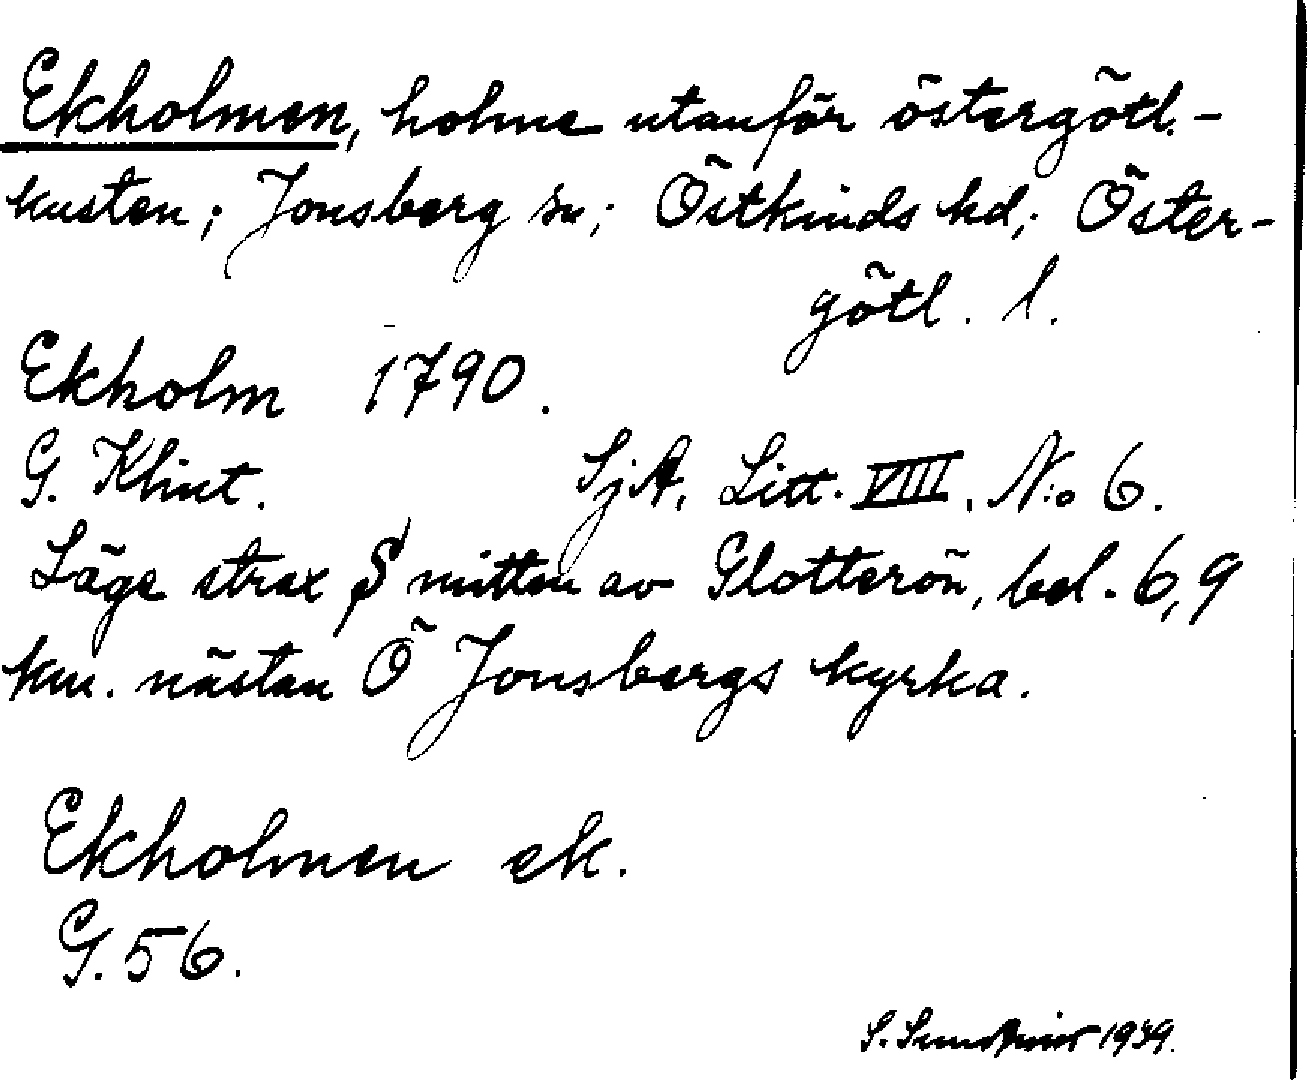 Ekholmen, holme utanför östergötl.-
kusten; Jonsberg sn; Östkinds hd; Öster-
götl. l.
Ekholm 1790.
G. Klint. SjA, Litt. VIII, N:o 6.
Läge strax S mitten av Glotterön, bel. 6,9
km. nästan Ö Jonsbergs kyrka.
Ekholmen ek.
G. 56.
S. 1939.